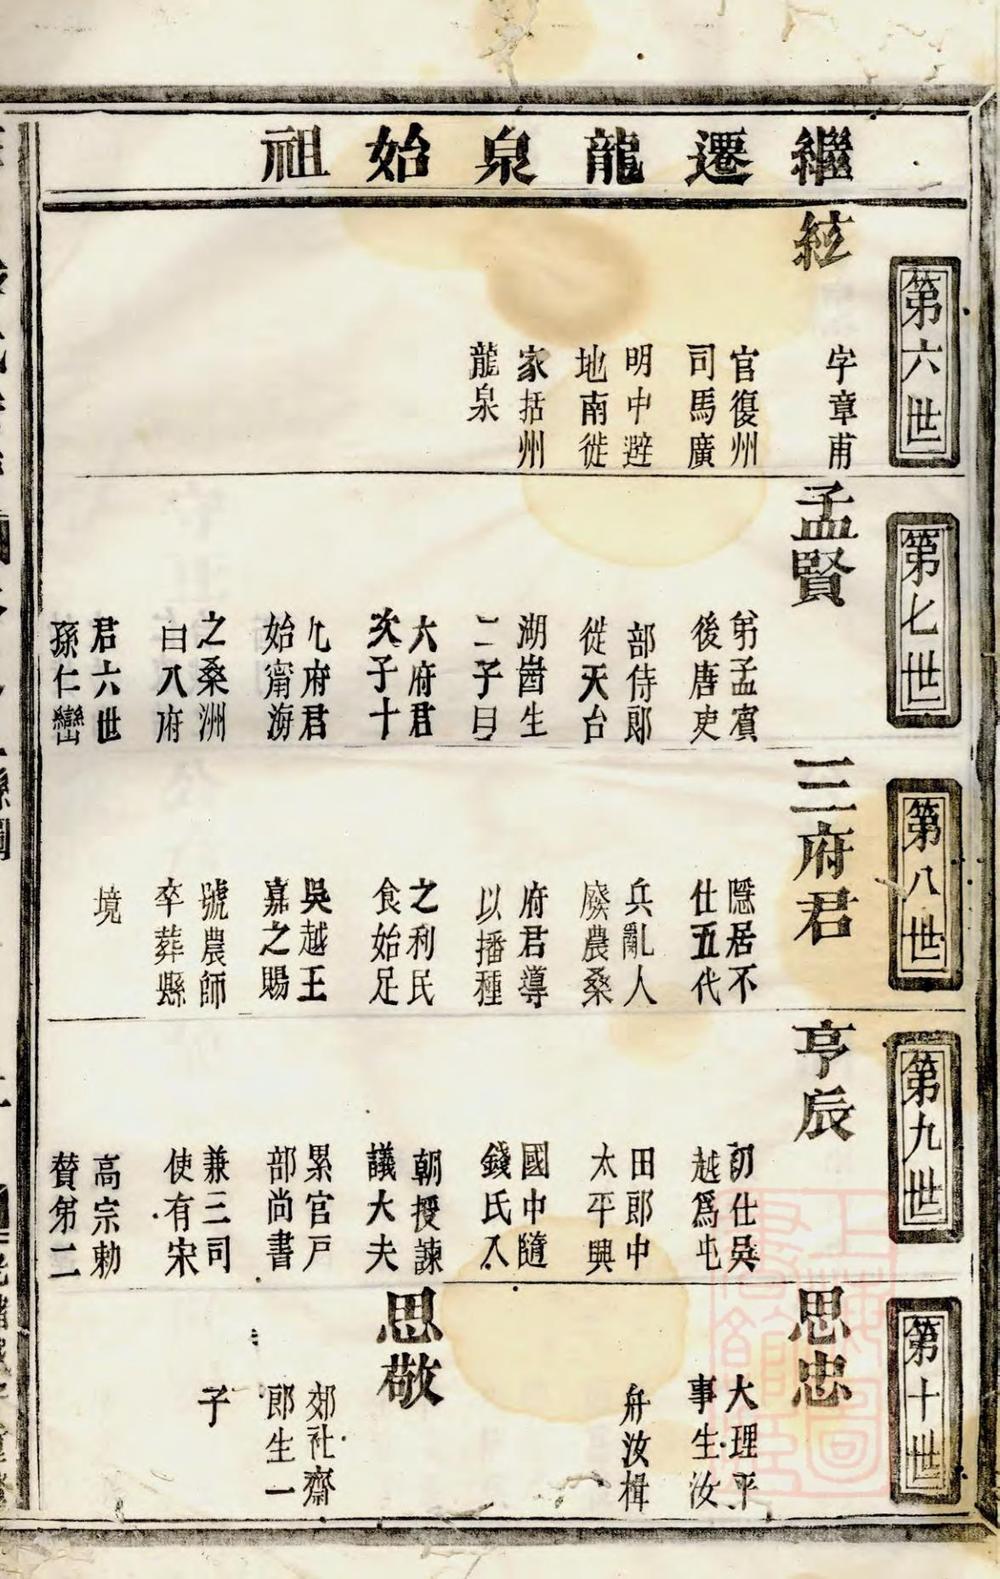 繼遷龍泉始祖
第六世
絃
字章甫
官復州
司馬廣
明中避
地南徙
家括州
龍泉
第七世
孟賢
弟孟賓
後唐吏
部侍郎
徙天台
湖𡺲生
二子曰
六府君
次子十
九府君
始甯海
之桑洲
曰八府
君六世
孫仁巒
第八世
三府君
隱居不
仕五代
兵亂人
廢農桑
府君導
以播種
之利民
食始足
吳越王
嘉之賜
號農師
卒葬縣
境
第九世
亨辰
初仕吳
越爲屯
田郎中
太平興
國中隨
錢氏入
朝授諫
議大夫
累官戸
部尚書
兼三司
使有宋
高宗勅
賛第二
第十世
思忠
大理平
事生汝
舟汝楫
思敬
郊社齋
郎生一
子